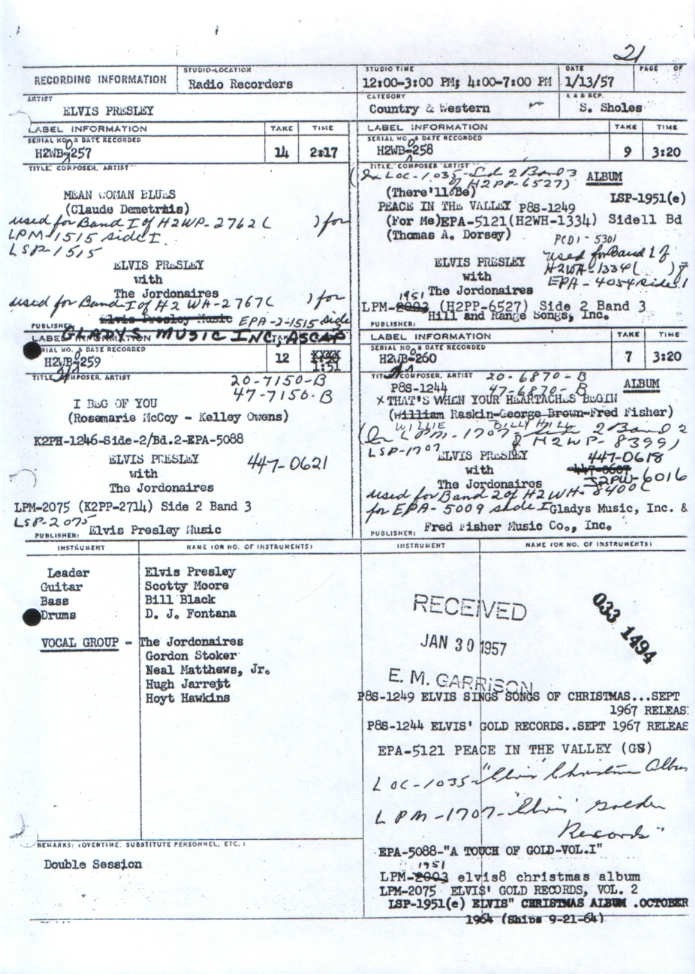 21
RECORDING INFORMATION
STUDIO-LOCATION
Radio Recorders
STUDIO TIME
12:00-3:00 PM; 4:00-7:00 PM
DATE
1/13/57
PAGE OF
ARTIST
ELVIS PRESLEY
CATEGORY
Country & Western
A & R REP.
S. Sholes
LABEL INFORMATION TAKE TIME
SERIAL NO. & DATE RECORDED
H2WB-0257 14 2:17
TITLE, COMPOSER, ARTIST
MEAN WOMAN BLUES
(Claude Demetruis)
used for Band I of H2WP-2762 ( ) for
LPM-1515 side I
LSP-1515
ELVIS PRESLEY
with
The Jordonaires
used for Band I of H2 WA-2767 ( ) for
Elvis Presley Music EPA-2-1515 side
PUBLISHER:
GLADYS MUSIC INC. ASCAP
LABEL INFORMATION TAKE TIME
SERIAL NO. & DATE RECORDED
H2WB-0258 9 3:20
TITLE, COMPOSER, ARTIST
(In LOC-1035-Sd 2 Band 3
of H2PP-6527) ALBUM
(There'll Be) LSP-1951(e)
PEACE IN THE VALLEY P8S-1249
(For Me)EPA-5121(H2WH-1334) Side1l Bd
(Thomas A. Dorsey)
PCD1-5301
used for Band 1 of
ELVIS PRESLEY H2WH-1334( )
with EPA-4054 side 1
The Jordonaires
1951
LPM-2003 (H2PP-6527) Side 2 Band 3
Hill and Range Songs, Inc.
PUBLISHER:
LABEL INFORMATION
SERIAL NO. & DATE RECORDED
H2WB-0259 12 1:51
TITLE, COMPOSER, ARTIST
20-7150-B
47-7150-B
I BEG OF YOU
(Rosemarie McCoy - Kelley Owens)
K2PH-1246-Side-2/Bd.2-EPA-5088
ELVIS PRESLEY 447-0621
with
The Jordonaires
LPM-2075 (K2PP-2714) Side 2 Band 3
LSP-2075
PUBLISHER: Elvis Presley Music
LABEL INFORMATION TAKE TIME
SERIAL NO. & DATE RECORDED
H2WB-0260 7 3:20
TITLE, COMPOSER, ARTIST 20-6870-B
P8S-1244 47-6870-B ALBUM
x THAT'S WHEN YOUR HEARTACHES BEGIN
(William Raskin-George Brown-Fred Fisher)
WILLIE BILLY HILL
(In LPM-1707 2 Band 2
LSP-1707 of H2WP-8399)
ELVIS PRESLEY 447-0618
with 447-0607
The Jordonaires J2PW-6016
used for Band 2 of H2WH-8400(
for EPA-5009 side I Gladys Music, Inc. &
Fred Fisher Music Co., Inc.
PUBLISHER:
INSTRUMENT NAME (OR NO. OF INSTRUMENTS)
Leader Elvis Presley
Guitar Scotty Moore
Bass Bill Black
Drums D. J. Fontana
VOCAL GROUP - The Jordonaires
Gordon Stoker
Neal Matthews, Jr.
Hugh Jarrett
Hoyt Hawkins
INSTRUMENT NAME (OR NO. OF INSTRUMENTS)
RECEIVED
JAN 30 1957
E. M. GARRISON
033 1494
P8S-1249 ELVIS SINGS SONGS OF CHRISTMAS...SEPT
1967 RELEAS
P8S-1244 ELVIS' GOLD RECORDS..SEPT 1967 RELEAS
EPA-5121 PEACE IN THE VALLEY (GS)
LOC-1035-"Elvis' Christmas Album
LPM-1707-"Elvis' Golden
Records"
EPA-5088-"A TOUCH OF GOLD-VOL.I"
1951
LPM-2003 elvis8 christmas album
LPM-2075 ELVIS' GOLD RECORDS, VOL. 2
LSP-1951(e) ELVIS" CHRISTMAS ALBUM .OCTOBER
1964 (Ships 9-21-64)
REMARKS: (OVERTIME, SUBSTITUTE PERSONNEL, ETC.)
Double Session